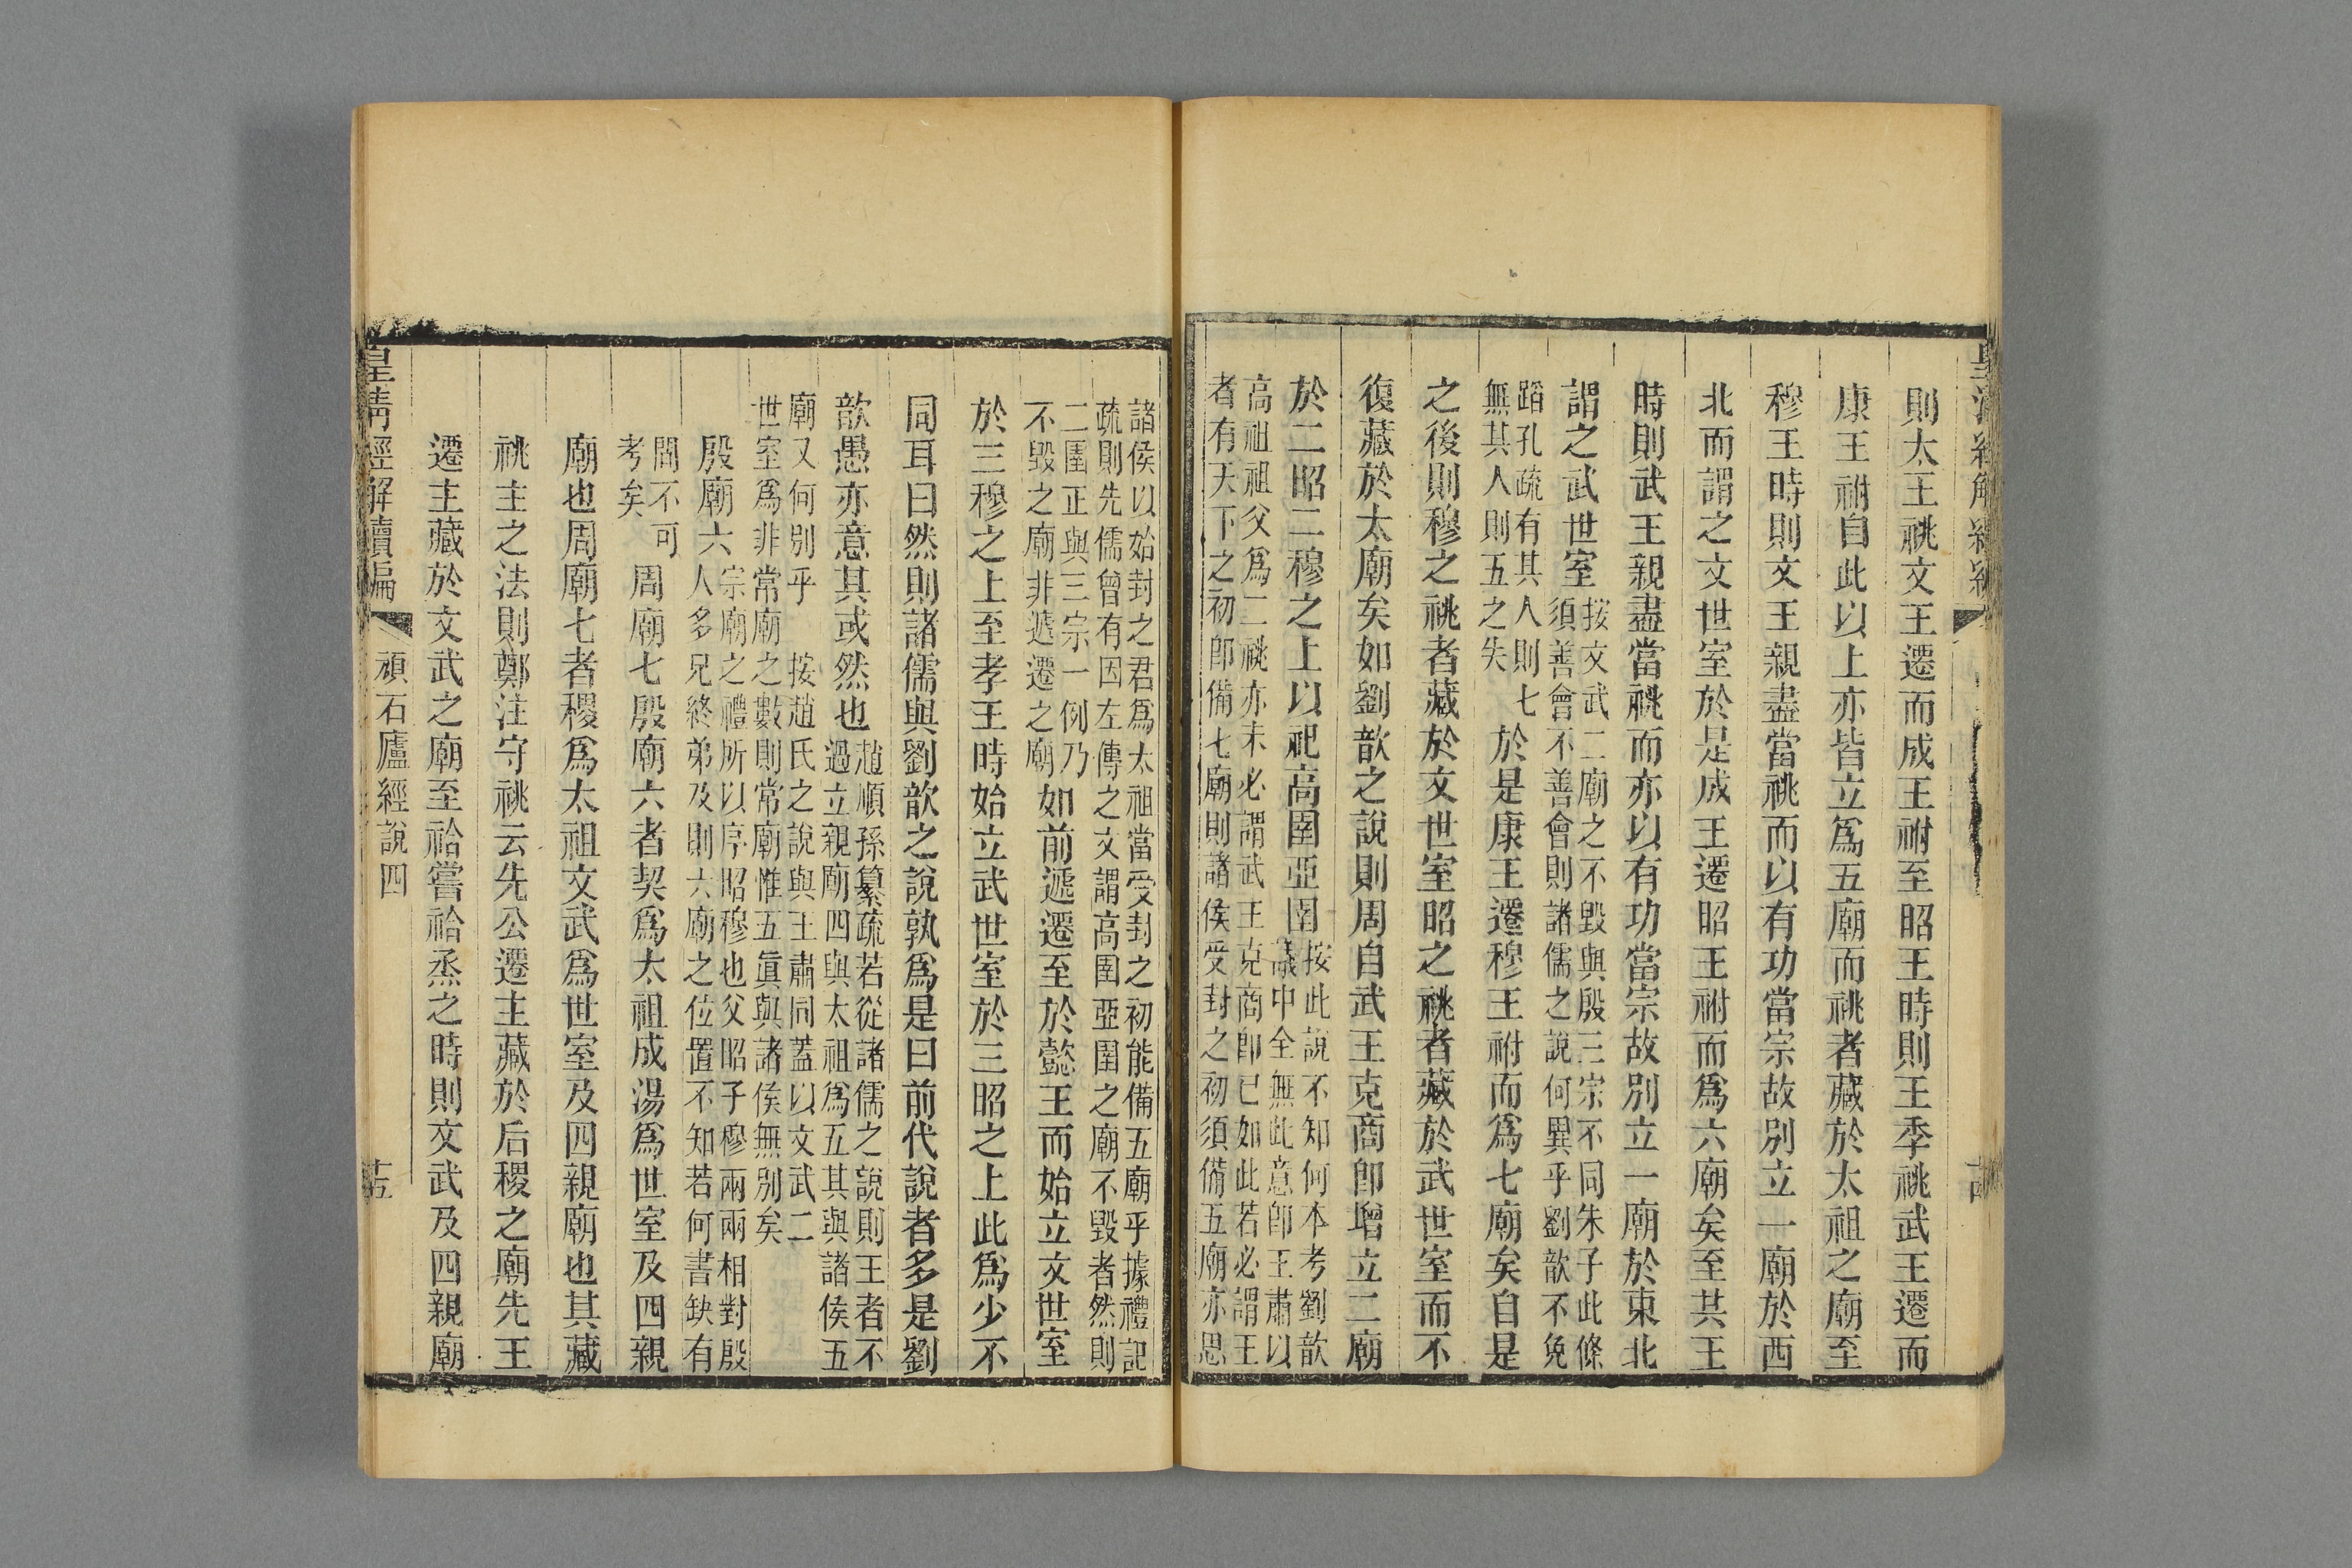 則太王祧文王遷而成王祔至昭王時則王季祧武王遷而
康王祔自此以上亦皆立爲五廟而祧者藏於太祖之廟至
穆王時則文王親盡當祧而以有功當宗故別立一廟於西
北而謂之文世室於是成王遷昭王祔而爲六廟矣至共王
時則武王親盡當祧而亦以有功當宗故別立一廟於東北
謂之武世室
按文武二廟之不毀與殷三宗不同朱子此條
須善會不善會則諸儒之說何異乎劉歆不免
蹈孔疏有其人則七
無其人則五之失
於是康王遷穆王祔而爲七廟矣自是
之後則穆之祧者藏於文世室昭之祧者藏於武世室而不
復藏於太廟矣如劉歆之說則周自武王克商卽增立二廟
於二昭二穆之上以祀高圉亞圉
按此說不知何本考劉歆
議中全無此意卽王肅以
高祖祖父爲二祧亦未必謂武王克商卽已如此若必謂王
者有天下之初卽備七廟則諸侯受封之初須備五廟亦思
諸侯以始封之君爲太祖當受封之初能備五廟乎據禮記
疏則先儒曾有因左傳之文謂高圉亞圉之廟不毀者然則
二圉正與三宗一例乃
不毀之廟非遞遷之廟
如前遞遷至於懿王而始立文世室
於三穆之上至孝王時始立武世室於三昭之上此爲少不
同耳曰然則諸儒與劉歆之說孰爲是曰前代說者多是劉
歆愚亦意其或然也
趙順孫纂疏若從諸儒之說則王者不
過立親廟四與太祖爲五其與諸侯五
廟又何別乎　按趙氏之說與王肅同蓋以文武二
世室爲非常廟之數則常廟惟五眞與諸侯無別矣
殷廟六
宗廟之禮所以序昭穆也父昭子穆兩兩相對殷
人多兄終弟及則六廟之位置不知若何書缺有
閒不可
考矣
周廟七殷廟六者契爲太祖成湯爲世室及四親
廟也周廟七者稷爲太祖文武爲世室及四親廟也其藏
祧主之法則鄭注守祧云先公遷主藏於后稷之廟先王
遷主藏於文武之廟至祫嘗祫烝之時則文武及四親廟
皇清經解續編
頑石廬經說四